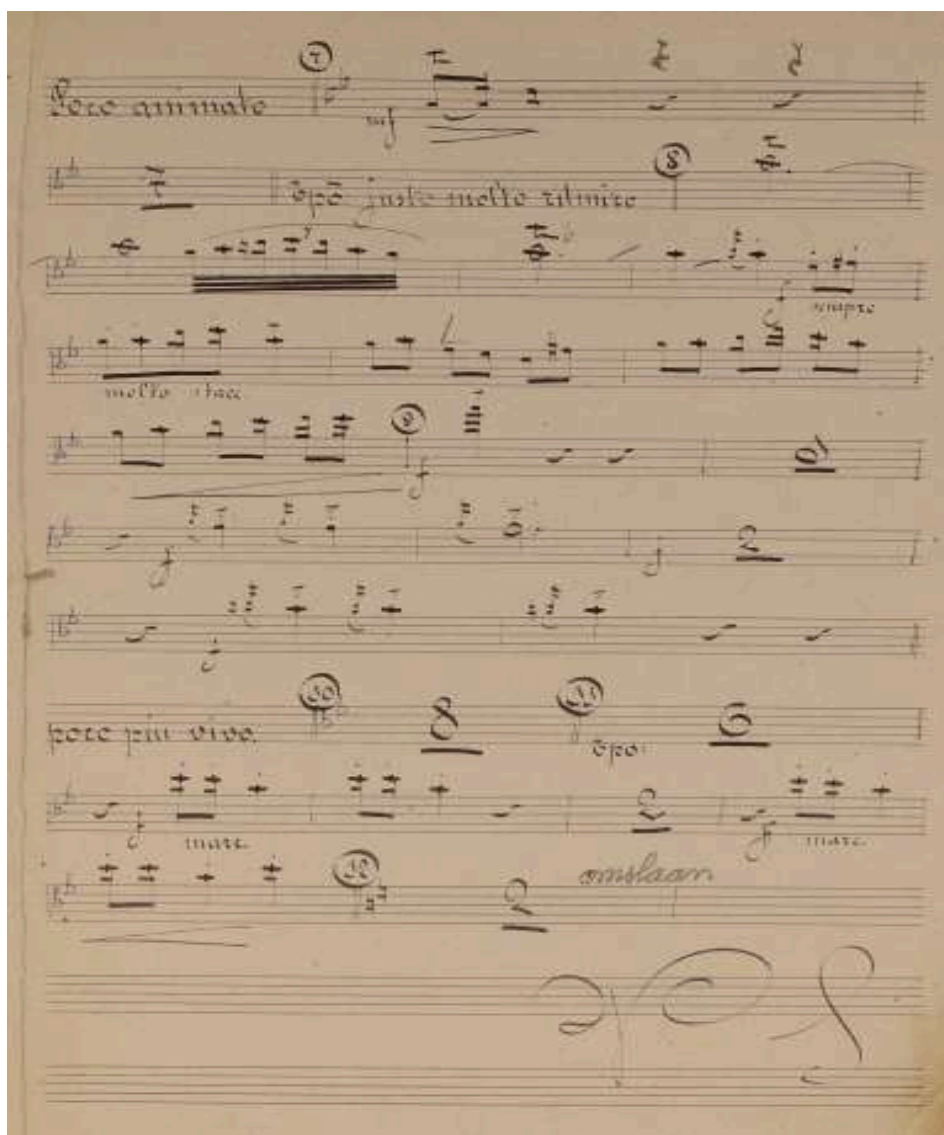 7
Poco animato mf
8
Tpo justo molto ritmico
7
f sempre
molto stacc
9
f
6
f f 2
f
10 11
poco piu vivo. 8 Tpo: 6
f marc. 2 f marc.
12 omslaan
2
V.S.